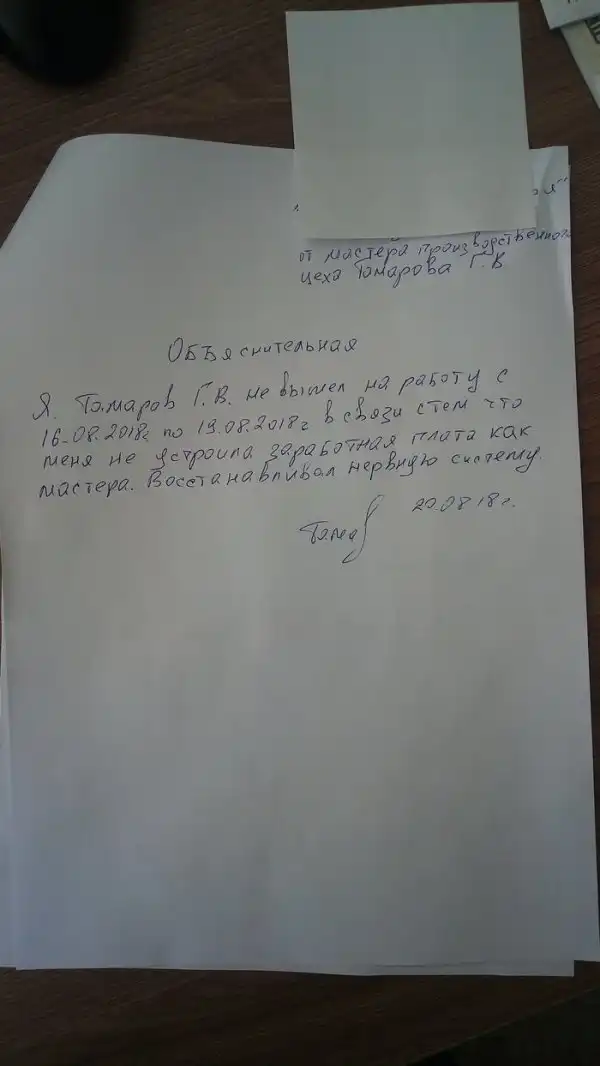 от мастера производственного
цеха Тамарова Г.В
Объяснительная
Я. Тамаров Г.В. не вышел на работу с
16-08.2018г по 19.08.2018г в связи стем что
меня не устроила заработная плата как
мастера. Восстанавливал нервную систему.
20.08 18г.